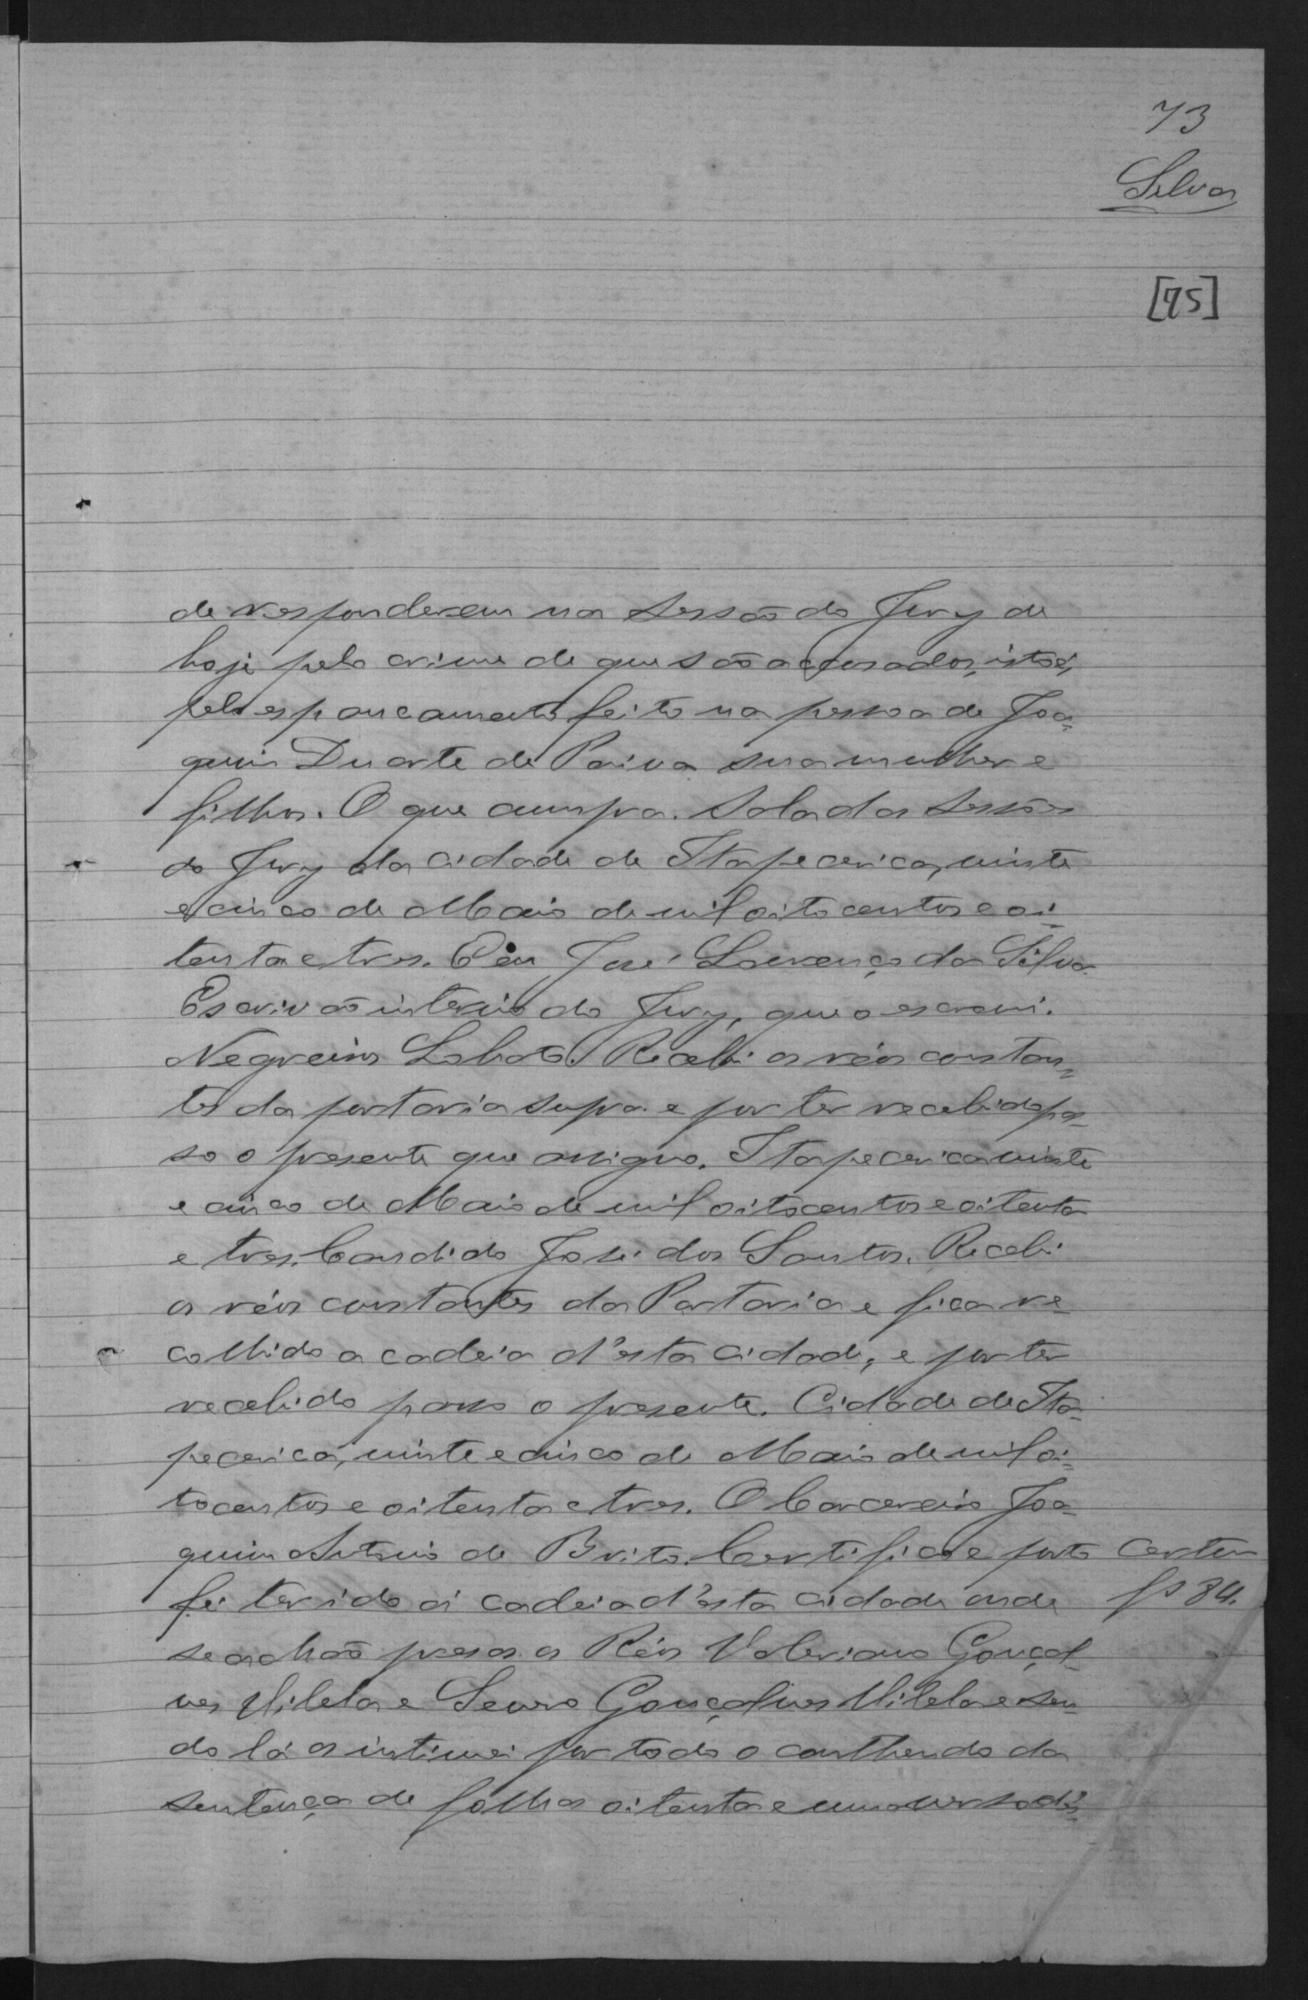 73
Silva
[75]
de responderem na sessão do Jury de
hoje pelo crime de que são accusados, isto é,
pelo espancamento feito na pessoa de Joa=
quim Duarte de Paiva sua mulher e
filhos. O que cumpra. Sala das Sessões
do Jury da cidade de Itapecerica, vinte
e cinco de Maio de mil oito centos e oi=
tenta e tres. Eu José Lourenço da Silva
Escrivão interino do Jury, que o escrevi.
Negreiros Lobato. Recebi os réos constan=
tes da portaria supra e por ter recebido pas=
so o presente que assigno. Itapecerica vinte
e cinco de Maio de mil oitocentos e oitenta
e tres. Candido José dos Santos. Recebi
os réos constantes da Portaria e fica re=
colhido a cadeia d'esta cidade, e por ter
recebido passo o presente. Cidade de Ita=
pecerica, vinte e cinco de Maio de mil oi=
tocentos e oitenta e tres. O Carcereiro Joa=
quim Antonio de Brito. Certifico e porto
fé ter ido á cadeia d'esta cidade onde
se achão presos os Réos Valeriano Gonçal=
ves Vilela e Gonçalves Vilela e sen=
do lá os intimei por todo o contheudo da
sentença de folhas oitenta e uma verso d'es=
Certm
fs 84.